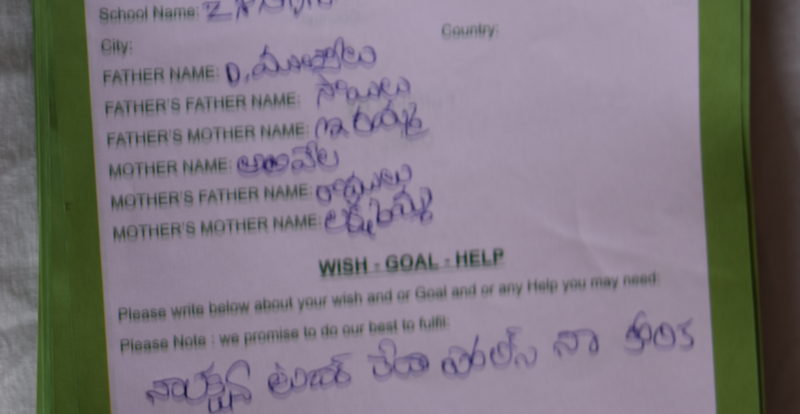 School Name:
City: Country:
FATHER NAME: D.
FATHER'S FATHER NAME: సాయిలు
FATHER'S MOTHER NAME:
MOTHER NAME:
MOTHER'S FATHER NAME: రాములు
MOTHER'S MOTHER NAME: లక్ష్మమ్మ
WISH - GOAL - HELP
Please write below about your wish and or Goal and or any Help you may need:
Please Note : we promise to do our best to fulfil:
టీచర్ లేదా పోలీస్ నా కోరిక